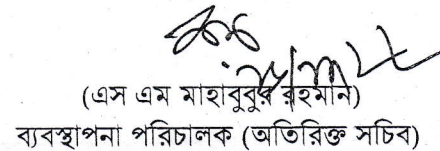 (এস এম মাহাবুবুর রহমান)
ব্যবস্থাপনা পরিচালক (অতিরিক্ত সচিব)